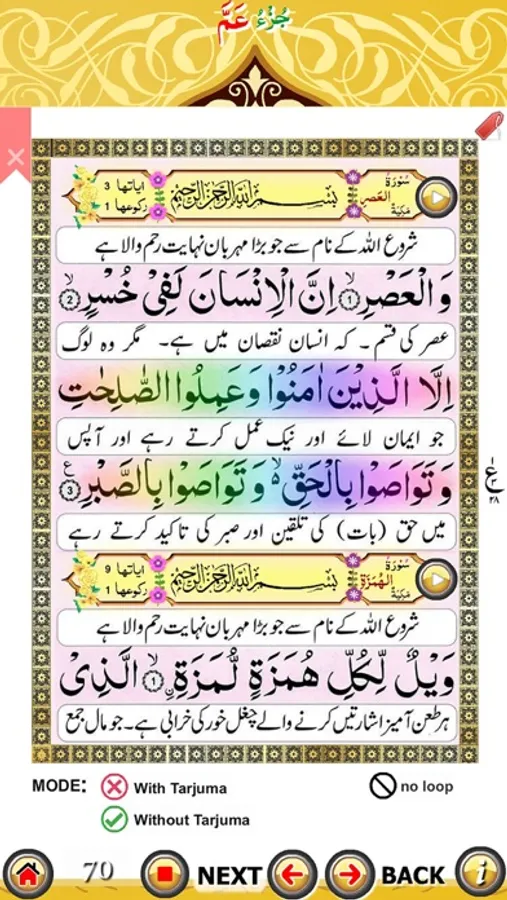 جُزْءُ عَمَّ
سُوْرَةُ العَصْرِ مَكِيَّةٌ
بِسْمِ اللهِ الرَّحْمٰنِ الرَّحِيْمِ
اٰیاتها 3
رکوعها 1
شروع اللہ کے نام سے جو بڑا مہربان نہایت رحم والا ہے
وَالْعَصْرِ ۙ۱ اِنَّ الْاِنْسَانَ لَفِیْ خُسْرٍ ۙ۲
عصر کی قسم ۔ کہ انسان نقصان میں ہے۔ مگر وہ لوگ
اِلَّا الَّذِیْنَ اٰمَنُوْا وَعَمِلُوا الصّٰلِحٰتِ
جو ایمان لائے اور نیک عمل کرتے رہے اور آپس
وَتَوَاصَوْا بِالْحَقِّ ۙ۬ وَتَوَاصَوْا بِالصَّبْرِ ع۳
ع ۲۸
میں حق (بات) کی تلقین اور صبر کی تاکید کرتے رہے
سُوْرَةُ الهُمَزَةِ مَكِيَّةٌ
بِسْمِ اللهِ الرَّحْمٰنِ الرَّحِيْمِ
اٰیاتها 9
رکوعها 1
شروع اللہ کے نام سے جو بڑا مہربان نہایت رحم والا ہے
وَیْلٌ لِّكُلِّ هُمَزَةٍ لُّمَزَةِ ۙ۱ الَّذِیْ
ہر طعن آمیز اشارتیں کرنے والے چغل خور کی خرابی ہے۔ جو مال جمع
MODE: With Tarjuma
no loop
Without Tarjuma
70 NEXT BACK i